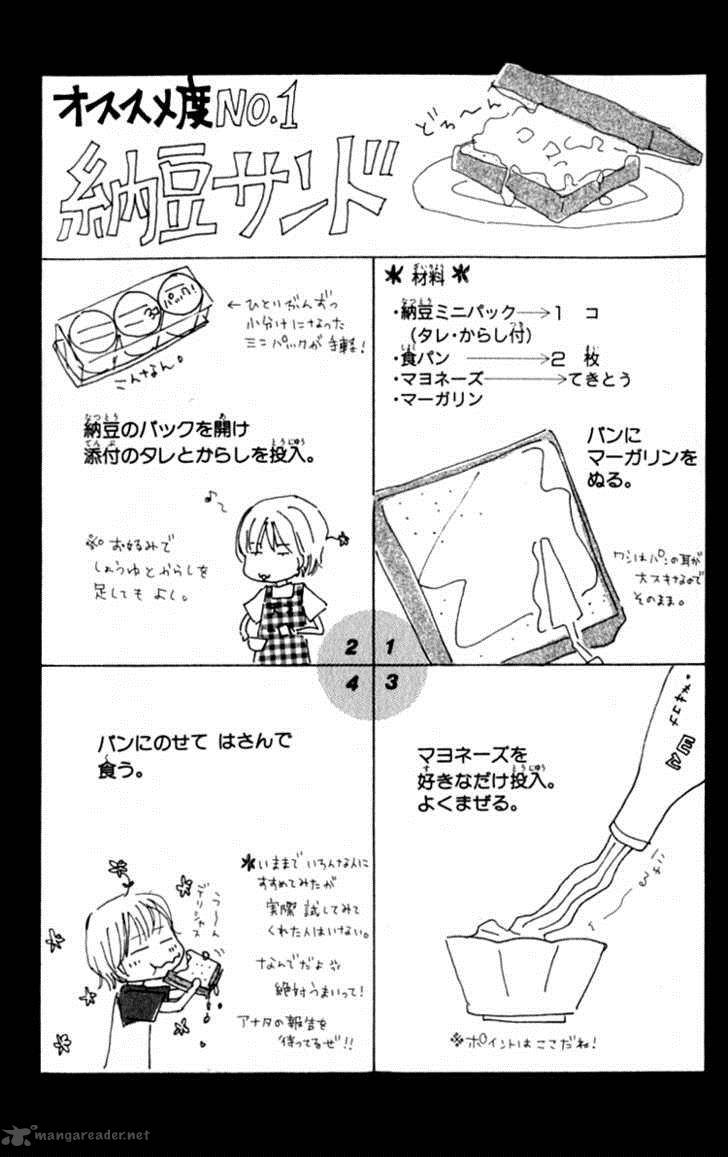 オススメ度NO.1
納豆サンド
どろ〜ん
＊材料＊
・納豆ミニパック→1 コ
(タレ・からし付)
・食パン →2 枚
・マヨネーズ→てきとう
・マーガリン
パンに
マーガリンを
ぬる。
ワシはパンの耳が
大スキなので
そのまま。
1
パック!
←ひとりぶんずつ
小分けになった
ミニパックが手軽!
こんなん。
納豆のパックを開け
添付のタレとからしを投入。
※お好みで
しょうゆとからしを
足してもよし。
2
マヨネーズを
好きなだけ投入。
よくまぜる。
※ポイントはここだね!
3
パンにのせて はさんで
食う。
う〜〜ん
デリシャス
＊いままでいろんな人に
すすめてみたが
実際試してみて
くれた人はいない。
なんでだよ
絶対うまいって!
アナタの報告を
待ってるぜ!!
4
mangareader.net